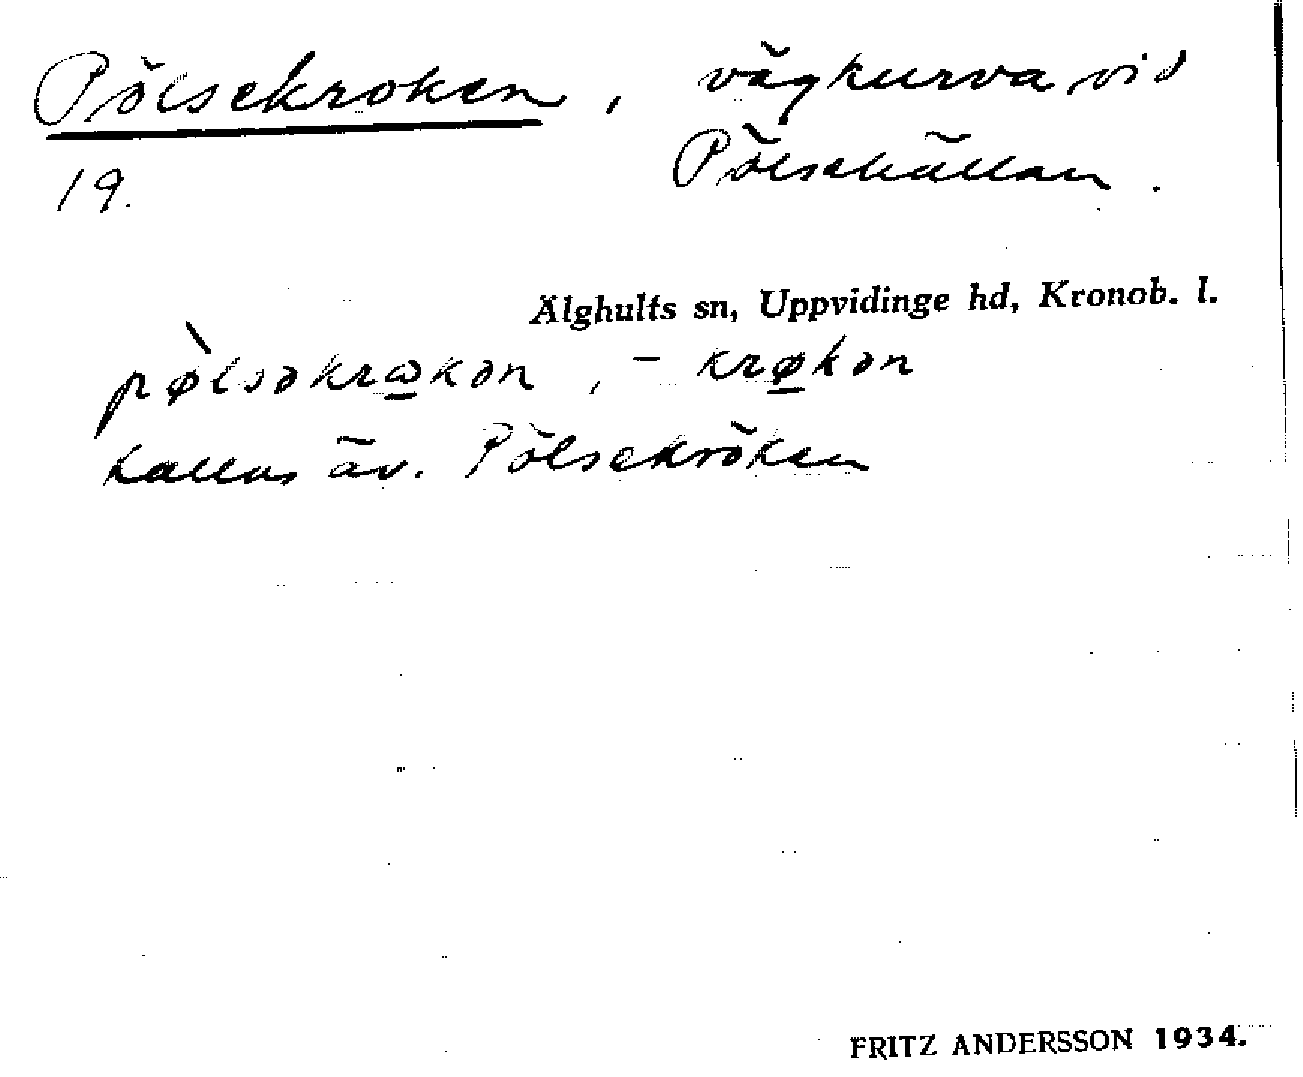 Pölsekroken, vägkurva vid
Pölsekällan.
19.
Älghults sn, Uppvidinge hd, Kronob. l.
pø̀lsəkrωkən, - krøkən
kallas äv. Pölsekröken
FRITZ ANDERSSON 1934.